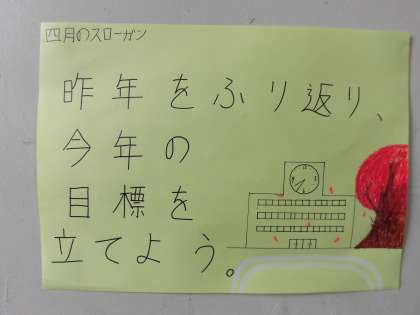 四月のスローガン
昨年をふり返り、
今年の
目標を
立てよう。